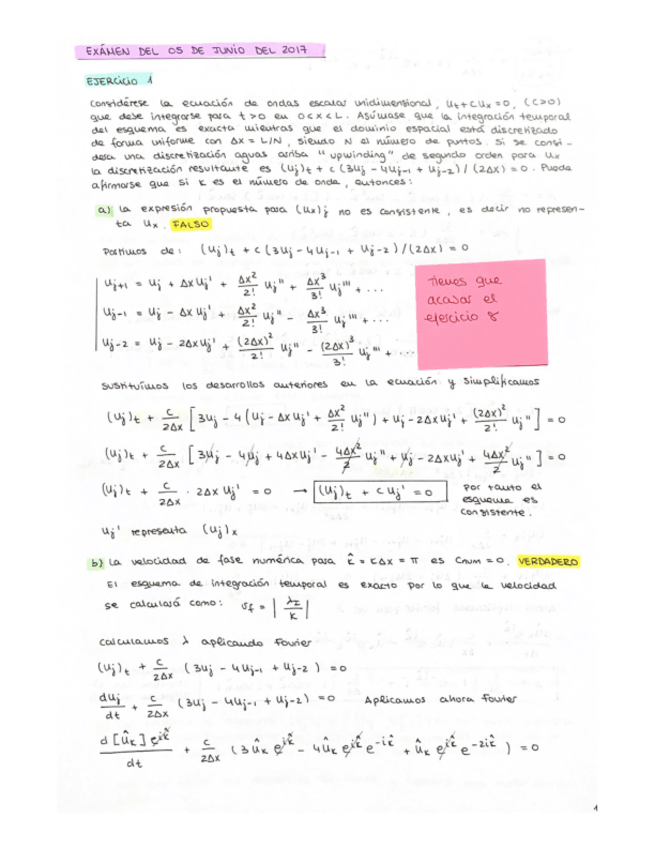 EXÁMEN DEL 05 DE JUNIO DEL 2017
EJERCICIO 1
Considérese la ecuación de ondas escalar unidimensional, Ut + CUx = 0, (C>0)
que debe integrarse para t>0 en 0<x<L. Asúmase que la integración temporal
del esquema es exacta mientras que el dominio espacial está discretizado
de forma uniforme con Δx = L/N, siendo N el número de puntos. Si se consi-
dera una discretización aguas arriba "upwinding" de segundo orden para Ux
la discretización resultante es (Uj)t + c (3Uj - 4Uj-1 + Uj-2) / (2Δx) = 0. Puede
afirmarse que si K es el número de onda, entonces:
a) La expresión propuesta para (Ux)j no es consistente, es decir no represen-
ta Ux. FALSO
Partimos de: (Uj)t + c (3Uj - 4Uj-1 + Uj-2) / (2Δx) = 0
Uj+1 = Uj + ΔxUj' + Δx²/2! Uj'' + Δx³/3! Uj''' + ...
Uj-1 = Uj - ΔxUj' + Δx²/2! Uj'' - Δx³/3! Uj''' + ...
Uj-2 = Uj - 2ΔxUj' + (2Δx)²/2! Uj'' - (2Δx)³/3! Uj''' + ...
Tienes que
acabar el
ejercicio 8
Sustituímos los desarrollos anteriores en la ecuación y simplificamos
(Uj)t + c/2Δx [3Uj - 4 (Uj - ΔxUj' + Δx²/2! Uj'') + Uj - 2ΔxUj' + (2Δx)²/2! Uj''] = 0
(Uj)t + c/2Δx [3Uj - 4Uj + 4ΔxUj' - 4Δx²/2 Uj'' + Uj - 2ΔxUj' + 4Δx²/2 Uj''] = 0
(Uj)t + c/2Δx · 2Δx Uj' = 0 → (Uj)t + c Uj' = 0 Por tanto el
esquema es
consistente.
Uj' representa (Uj)x
b) La velocidad de fase numérica para k̂ = KΔx = π es Cnum = 0. VERDADERO
El esquema de integración temporal es exacto por lo que la velocidad
se calculará como: vf = | λI/K |
Calculamos λ aplicando Fourier
(Uj)t + c/2Δx (3Uj - 4Uj-1 + Uj-2) = 0
dUj/dt + c/2Δx (3Uj - 4Uj-1 + Uj-2) = 0 Aplicamos ahora Fourier
d[ûk] e^ik̂/dt + c/2Δx (3ûk e^ik̂ - 4ûk e^ik̂ e^-ik̂ + ûk e^ik̂ e^-2ik̂) = 0
1